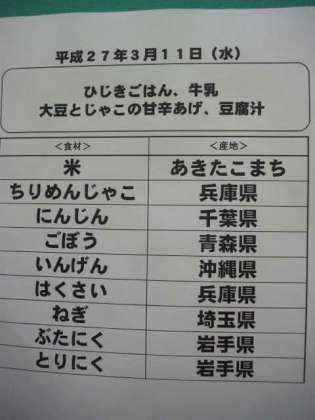 平成27年3月11日（水）
ひじきごはん、牛乳
大豆とじゃこの甘辛あげ、豆腐汁
＜食材＞ ＜産地＞
米 あきたこまち
ちりめんじゃこ 兵庫県
にんじん 千葉県
ごぼう 青森県
いんげん 沖縄県
はくさい 兵庫県
ねぎ 埼玉県
ぶたにく 岩手県
とりにく 岩手県